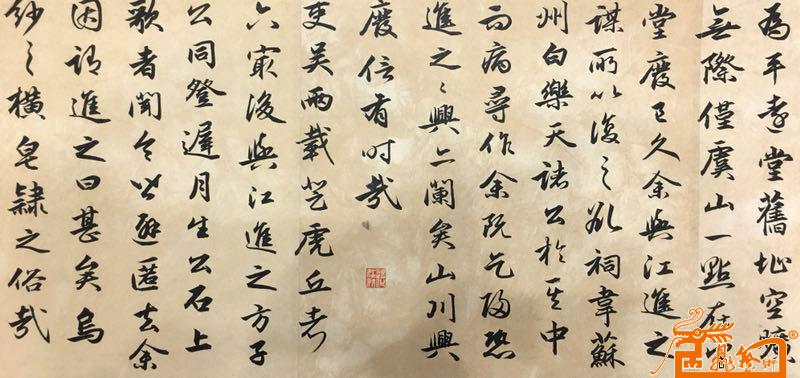 為平遠堂舊址空曠
無際僅虞山一點在
堂廢已久余與江進之
謀所以復之欲祠韋蘇
州白樂天諸公於其中
而病尋作余既乞歸恐
進之之興亦闌矣山川興
廢信有时哉
吏吳兩載登虎丘者
六寂後與江進之方子
公同登遲月生公石上
歌者聞令皆避匿去余
因謂進之曰甚矣烏
紗之橫皂隸之俗哉